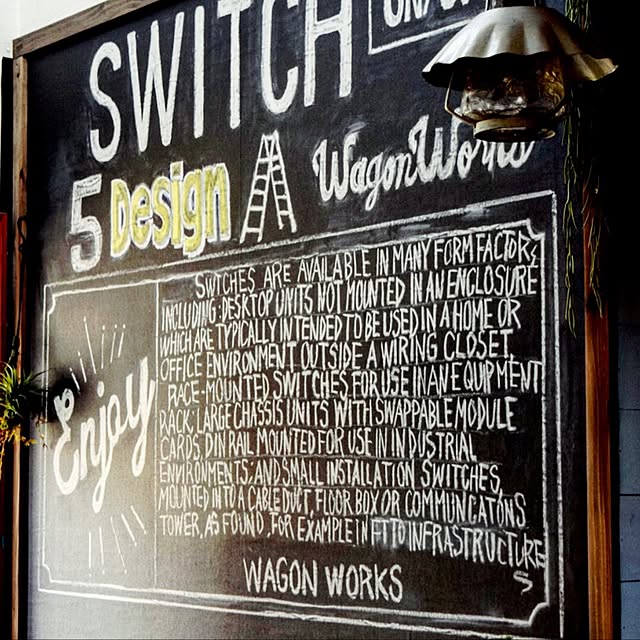 SWITCH
5 Design WagonWorks
Enjoy
SWITCHES ARE AVAILABLE IN MANY FORM FACTORS,
INCLUDING: DESKTOP UNITS NOT MOUNTED IN AN ENCLOSURE
WHICH ARE TYPICALLY INTENDED TO BE USED IN A HOME OR
OFFICE ENVIRONMENT OUTSIDE A WIRING CLOSET,
RACE-MOUNTED SWITCHES FOR USE IN AN E QUIPMENT
RACK; LARGE CHASSIS UNITS WITH SWAPPABLE MODULE
CARDS DIN RAIL MOUNTED FOR USE IN IN DUSTRIAL
ENVIRONMENTS; AND SMALL INSTALLATION SWITCHES,
MOUNTED IN TO A CABLE DUCT, FLOOR BOX OR COMMUNCATONS
TOWER, AS FOUND, FOR EXAMPLE IN FT TO INFRASTRUCTURE
S
WAGON WORKS